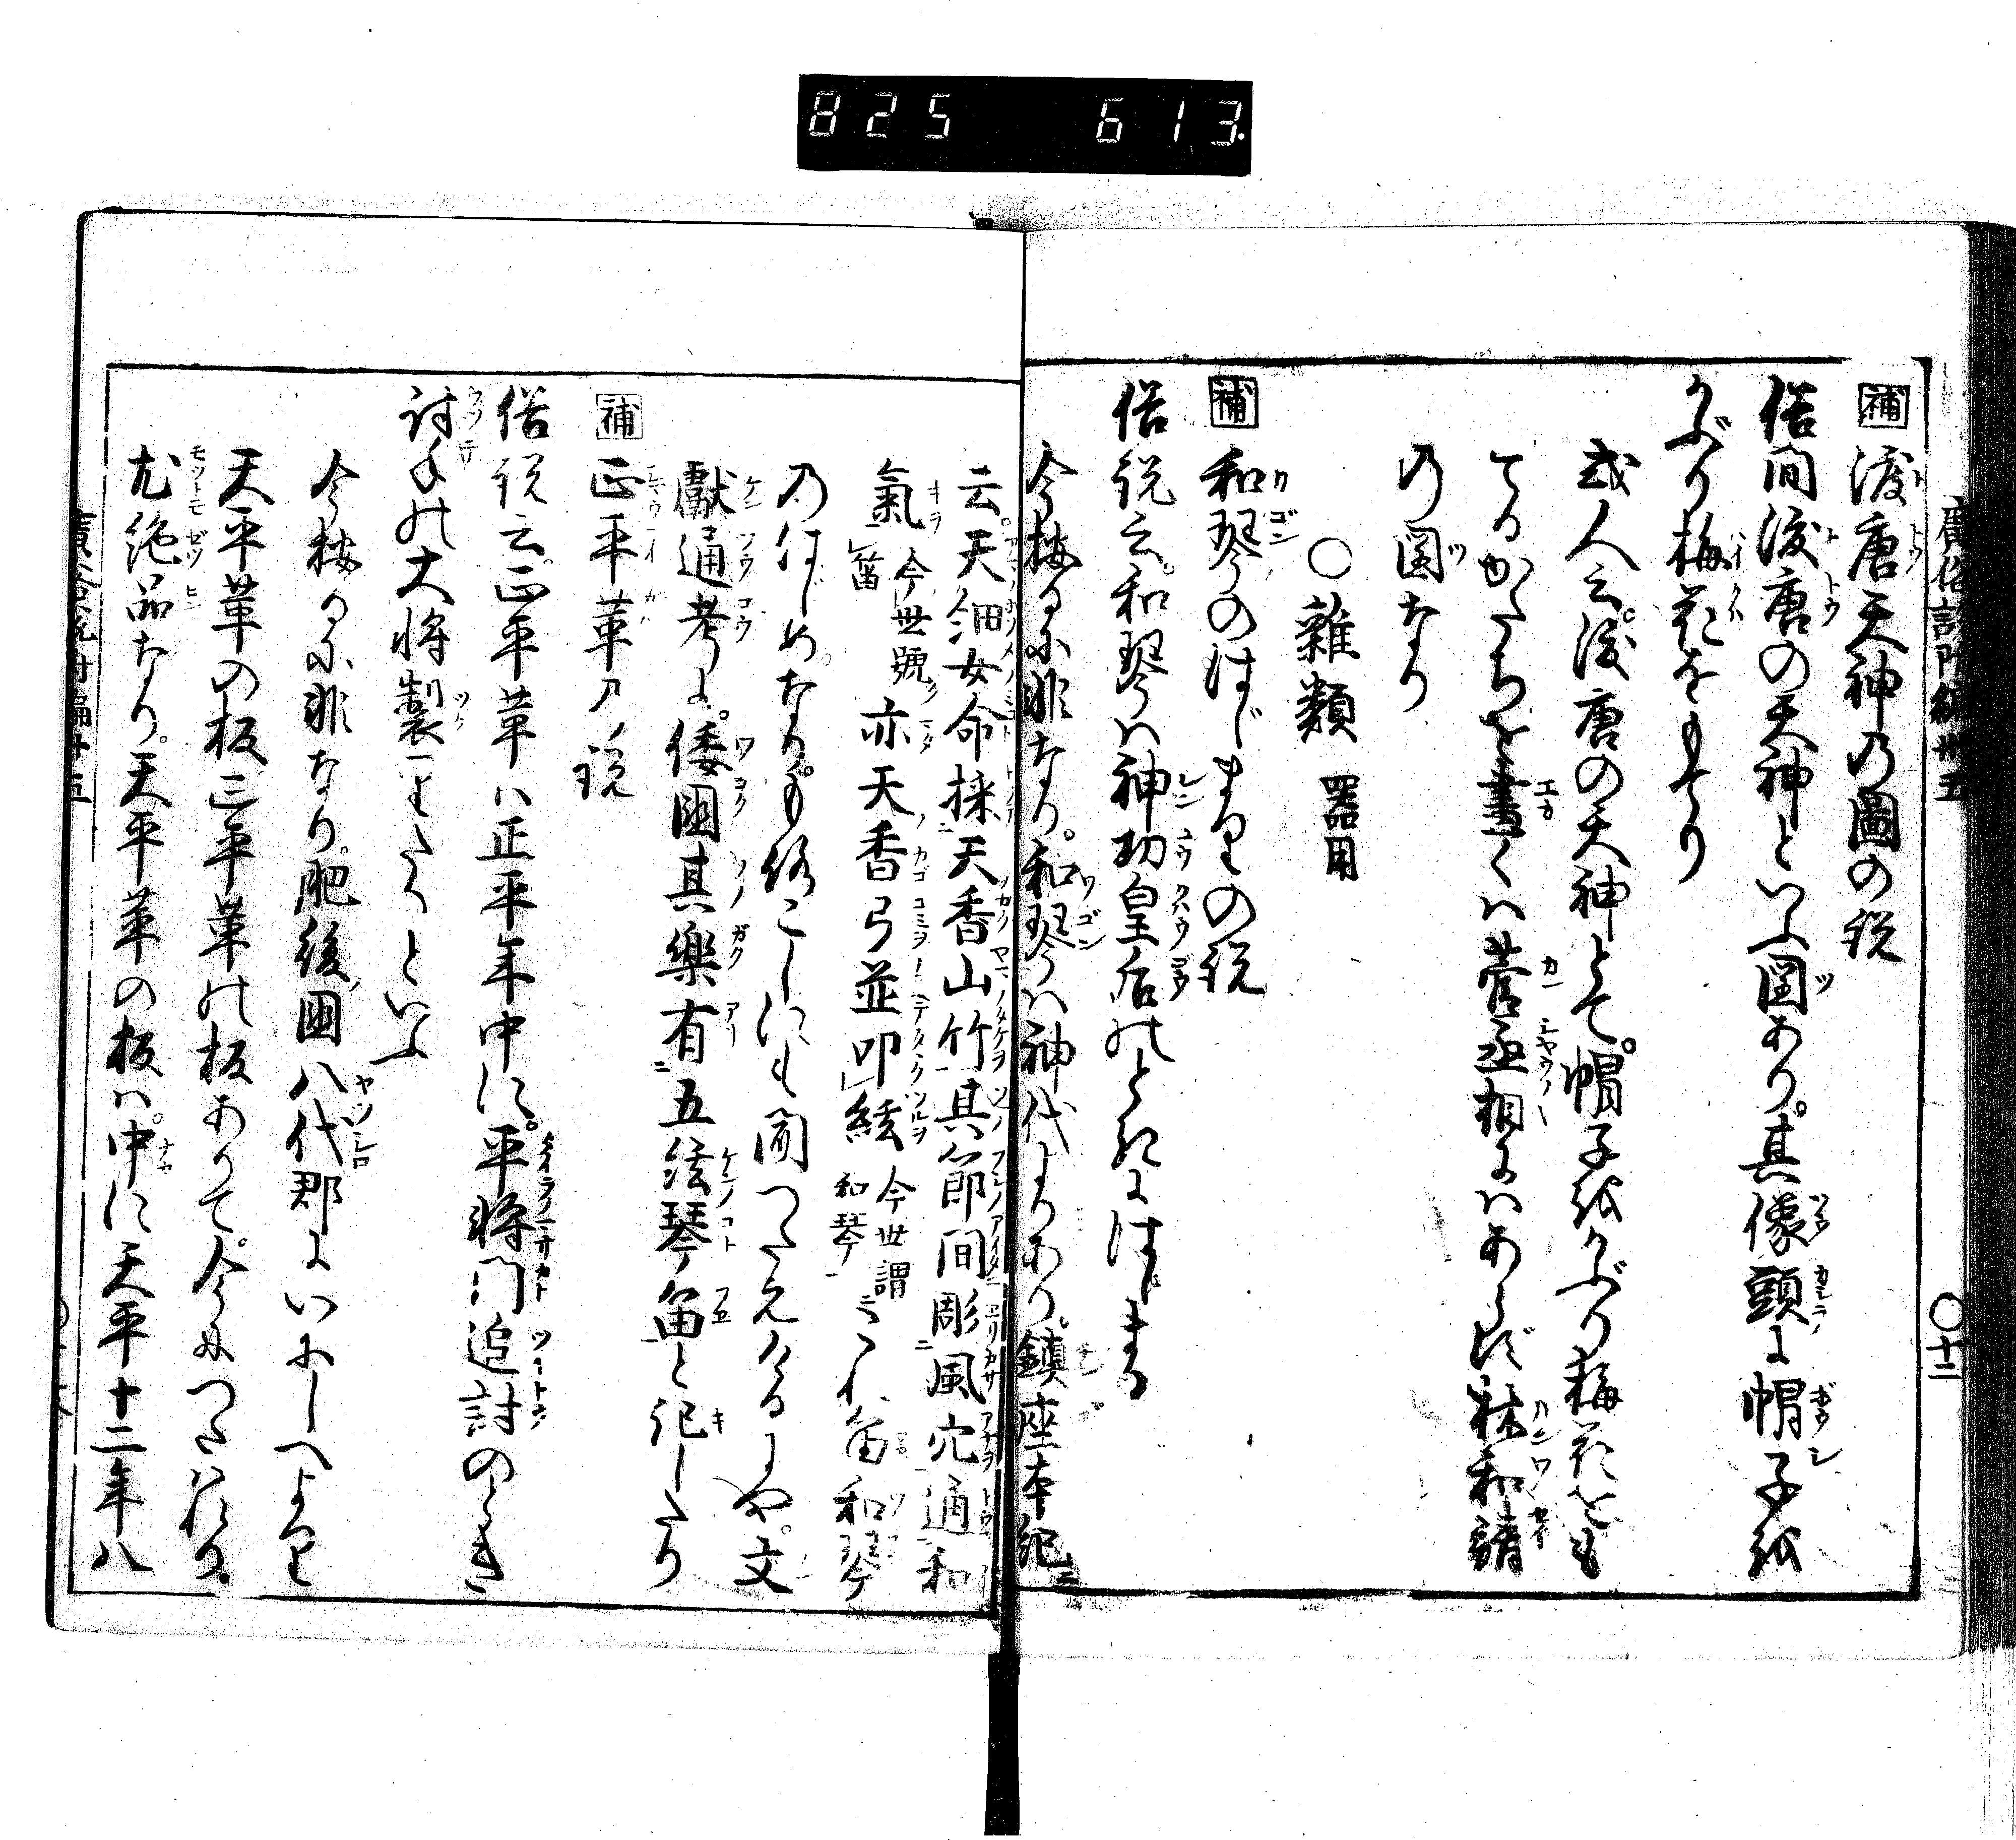 825 613
補 渡唐天神の圖の説
俗間渡唐の天神といふ図あり。其像頭に帽子を
かぶり梅花をもてり
或人云。渡唐の天神とて。帽子をかぶり梅花をも
てるかたちを畫くハ菅丞相にハあらず林和靖
の図なり
○雜類 器用
補 和琴のはじまりの説
俗説云。和琴ハ神功皇后のときにはじまる
今按るに非なり。和琴ハ神代よりあり。鎮座本紀ニ
云。天鈿女命採天香山竹其節間彫風穴通和
氣今世號笛亦天香弓並叩絃今世謂和琴これ笛和琴
のはじめなり。もろこしにも聞つたえけるにや。文
獻通考に。倭國其樂有五絃琴笛と記したり
補 正平革ノ説
俗説云。正平革ハ正平年中に。平将門追討のとき
討手の大将製しむるといふ
今按るに非なり。肥後國八代郡にいにしへより
天平革の板正平革の板ありて。今につたハれり。
尤絶品なり。天平革の板ハ。中に天平十二年八